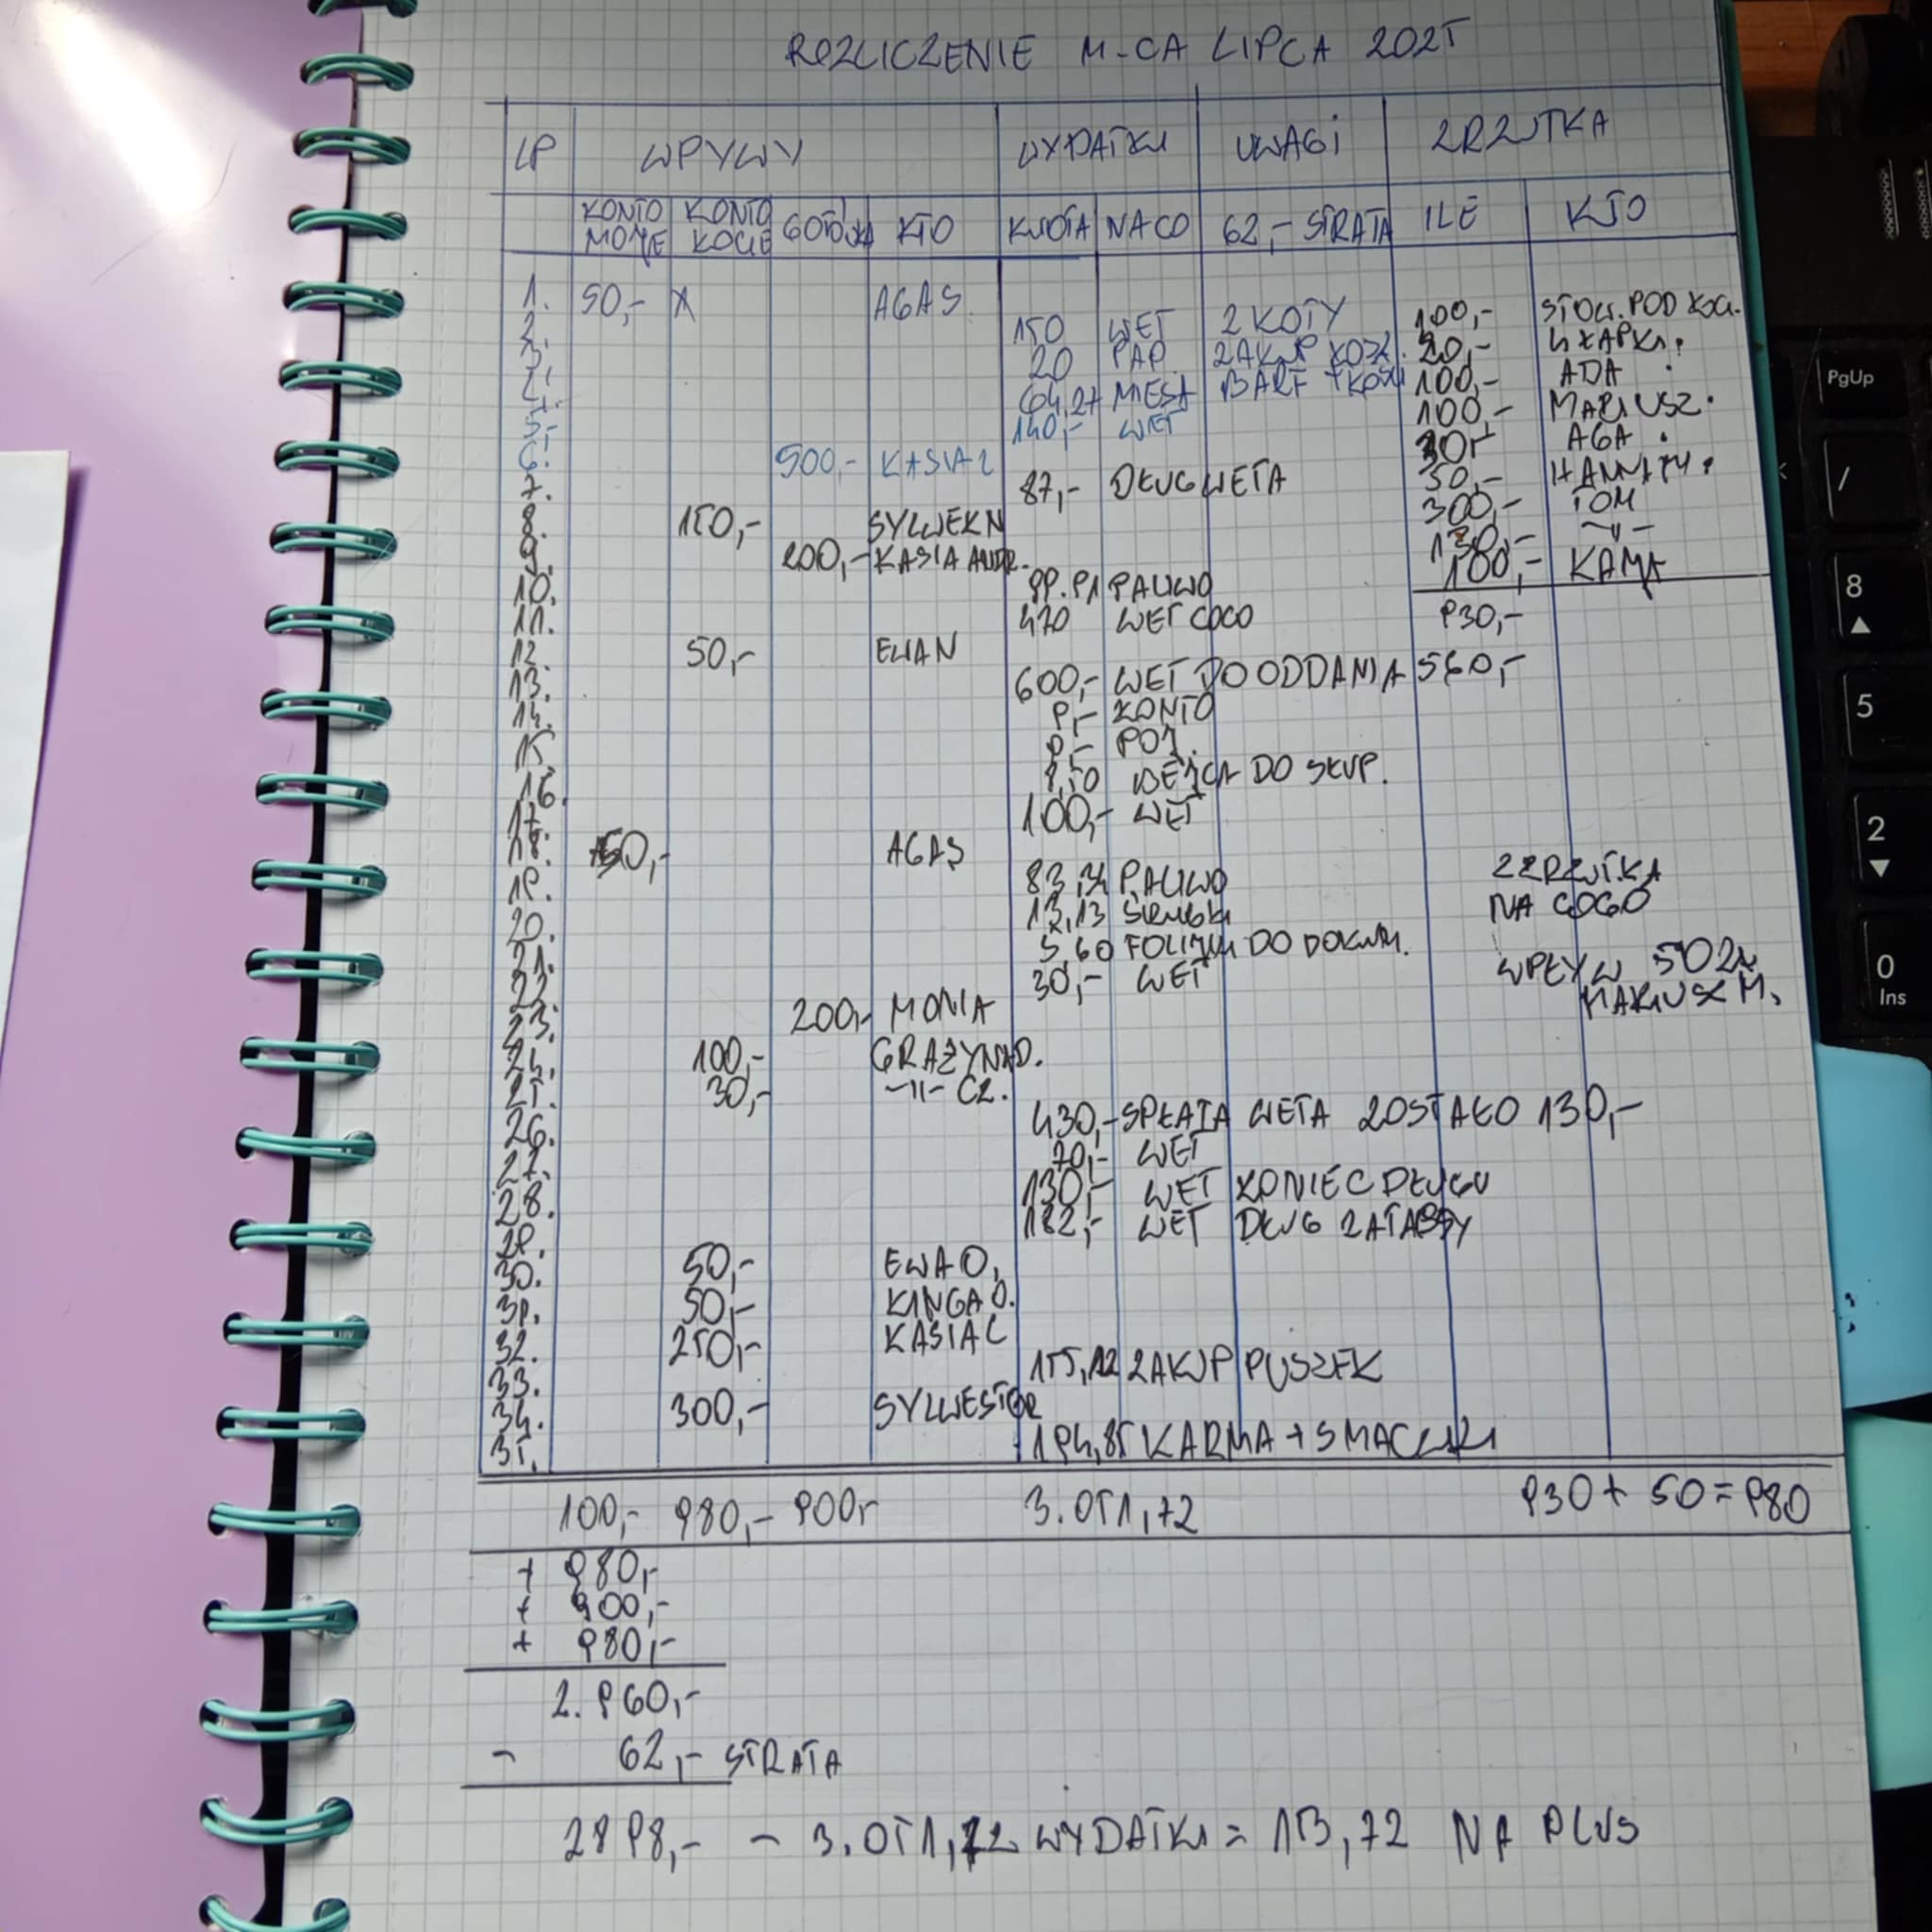 ROZLICZENIE M-CA LIPCA 2025
LP WPYWY WYDATKI UWAGI ZRZUTKA
KONTO MOJE KONTO KOCIE GOTÓWKA KTO KWOTA NA CO 62,- STRATA ILE KTO
1. 50,- X AGA S.
2. 150 WET 2 KOTY 100,- STOW. POD KOCI.
3. 20 PAP. ZAKUP 20,- 4 ŁAPKI.
4. 64,27 MIĘSA BARF 100,- ADA
5. 140,- WET 100,- MARIUSZ.
6. 500,- KASIA Z 30,- AGA.
7. 87,- DŁUG WETA 50,- HANNA
8. 150,- SYLWEK N 300,- TOM
9. 200,- KASIA ANDR. -"-
180,- KAMA
10. 99.91 PALIWO
11. 470 WET COCO 930,-
12. 50,- EWA N
13. 600,- WET DO ODDANIA 560,-
14. 9,- KONTO
15 9,- POJ.
16. 8,50 WEJŚCIA DO SKUP.
17. 100,- WET
18. 50,- AGA S
19. 83,34 PALIWO ZZRZUTKA
20. 13,13 ŚRUBKI NA COCO
21. 5,60 FOLIJKI DO DOKUM.
22. 30,- WET WPŁYW 50 ZŁ
23. 200,- MONIA MARIUSZ M.
24. 100,- GRAŻYNA D.
25. 30,- -"- CZ.
26. 430,- SPŁATA WETA ZOSTAŁO 130,-
27. 70,- WET
28. 130,- WET KONIEC DŁUGU
29. 182,- WET DŁUG ZA TABSY
30. 50,- EWA O,
31. 50,- KINGA O.
32. 250,- KASIA C
33. 155,12 ZAKUP PUSZEK
34. 300,- SYLWESTER
35. 194,85 KARMA + SMACZKI
100,- 980,- 900,- 3.051,72 930 + 50 = 980
+ 980,-
+ 900,-
+ 980,-
2.960,-
- 62,- STRATA
2898,- - 3.051,72 WYDATKI = 153,72 NA PLUS
PgUp
/
8
5
2
0
Ins